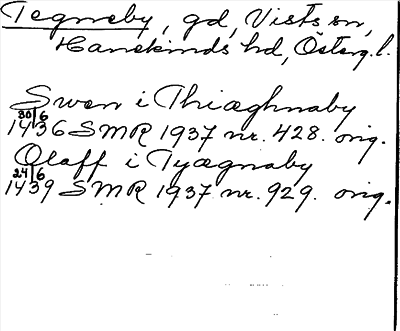 Tegneby, gd, Vists sn,
Hanekinds hd, Österg. l.
Swen i Thiæghnaby
30/6
1436 SMR 1937 nr. 428. orig.
Olaff i Tyægnaby
24/6
1439 SMR 1937 nr. 929. orig.